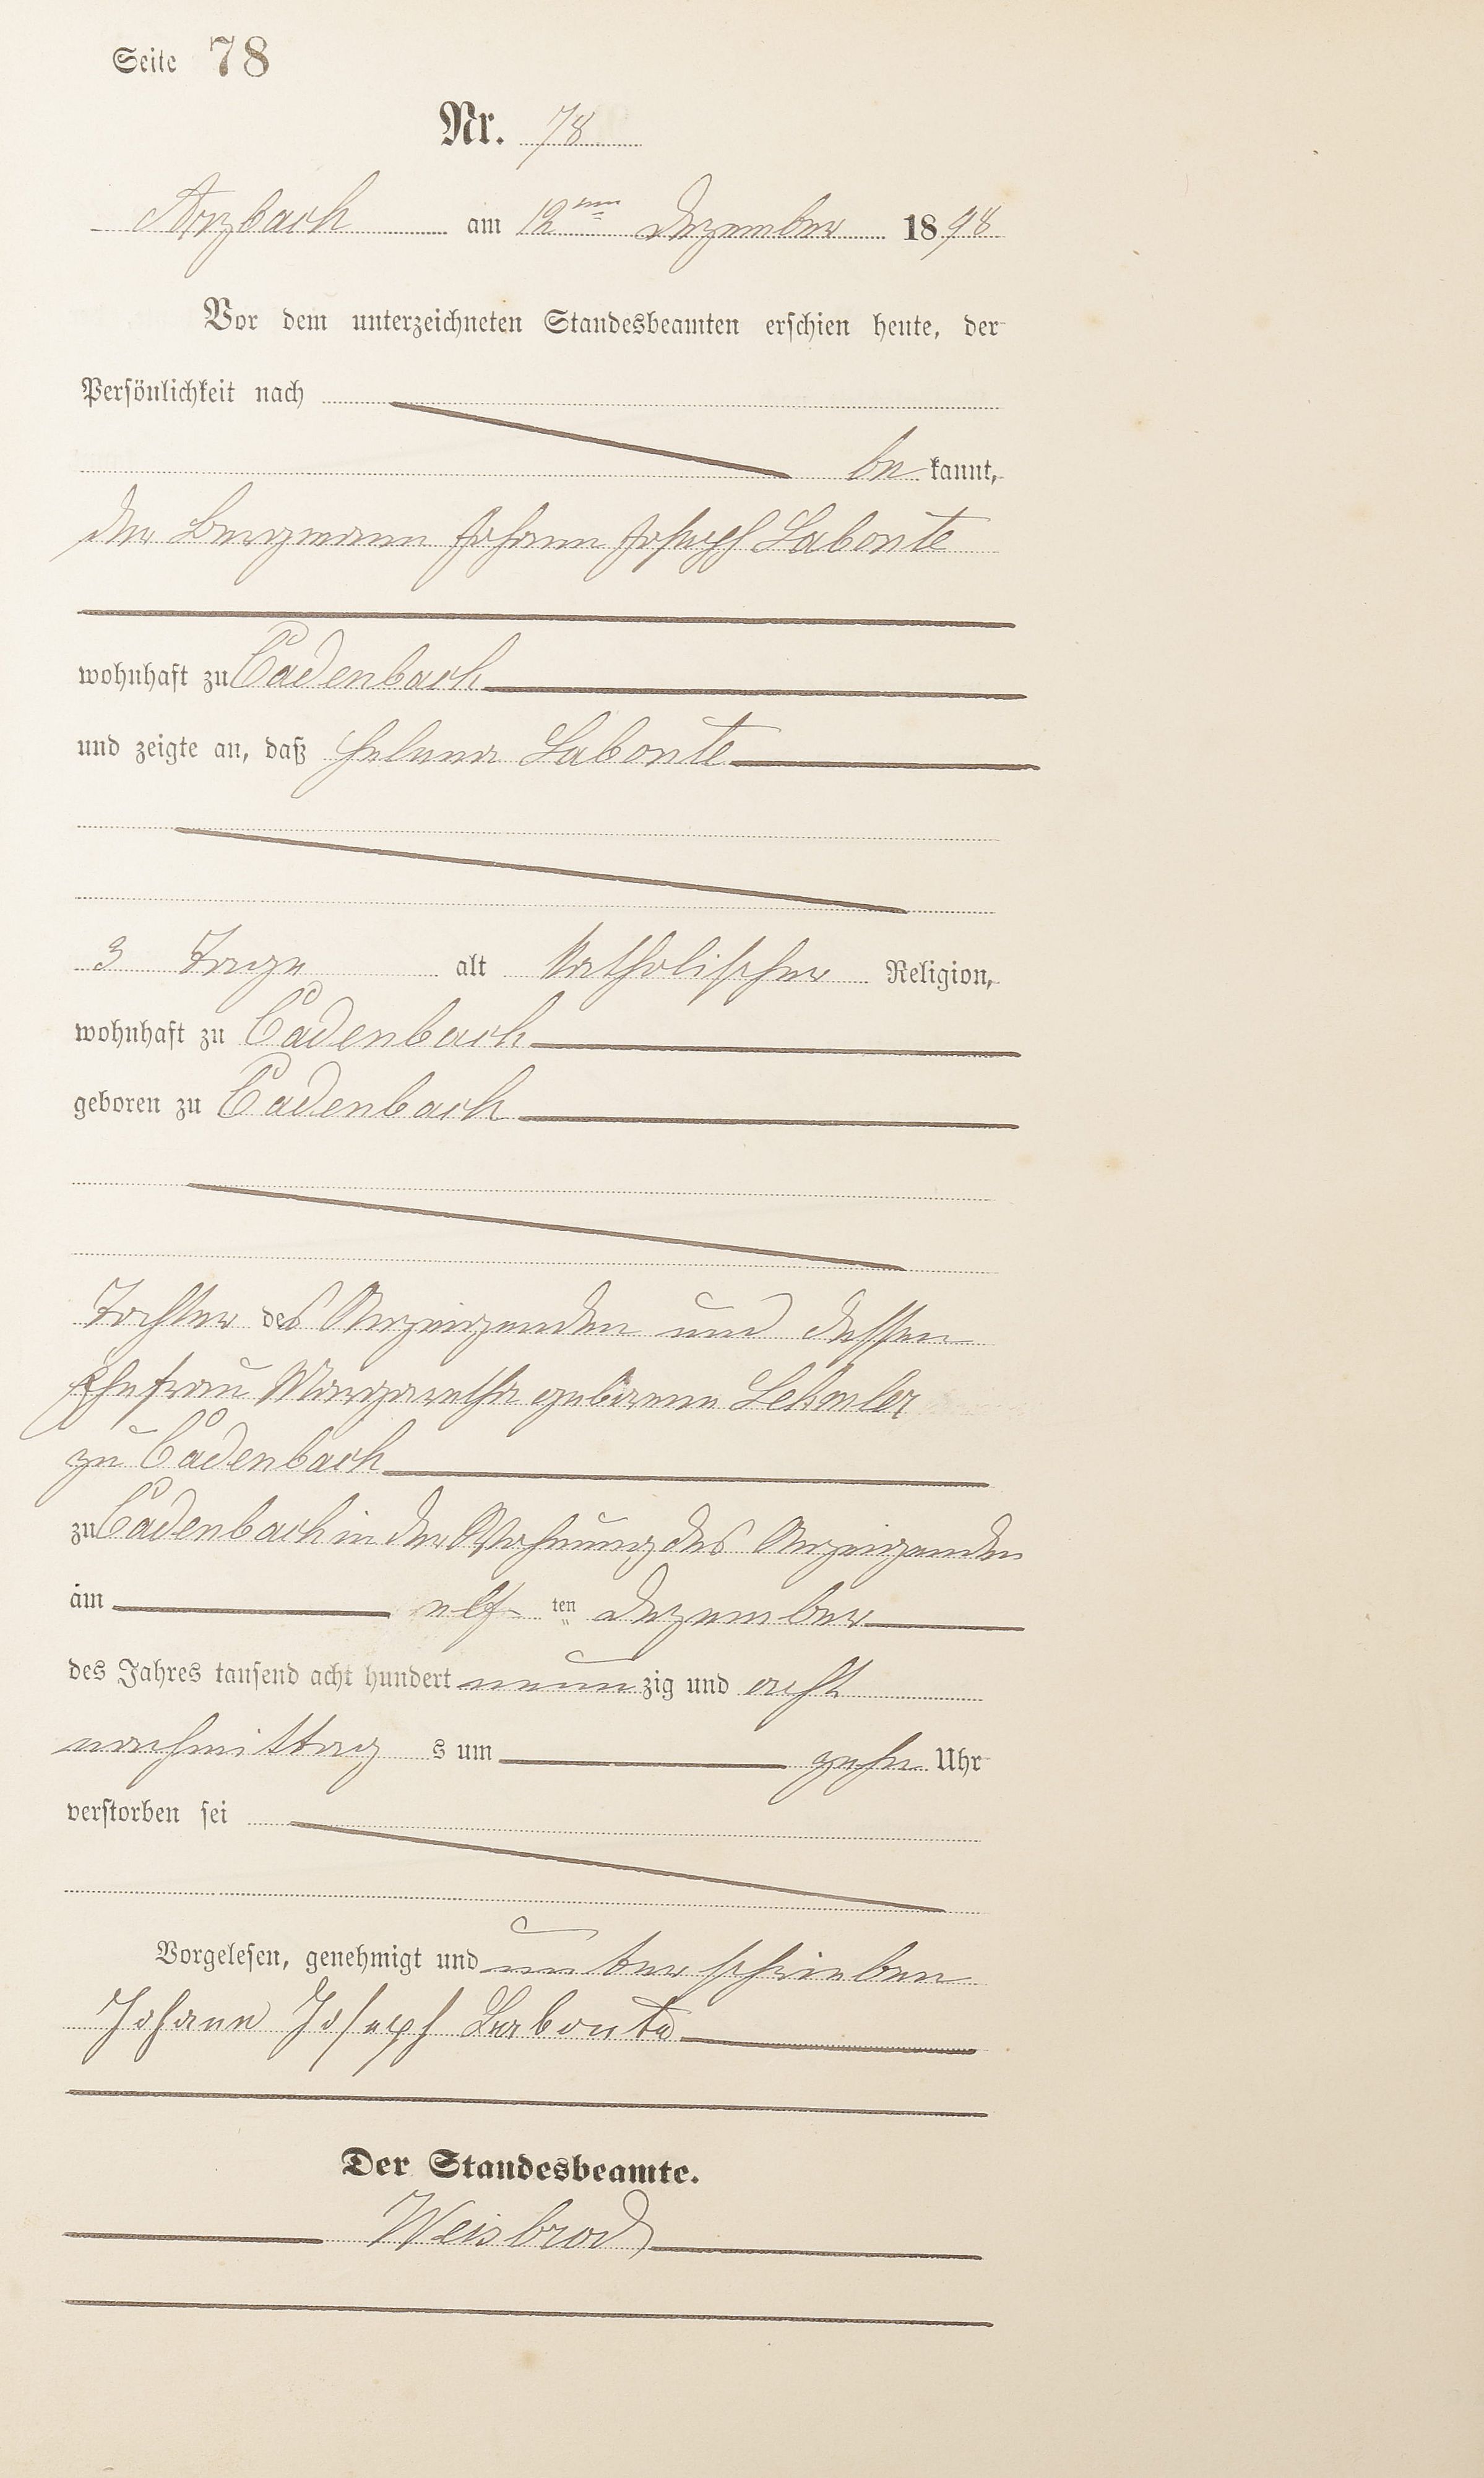 Seite 78
Nr. 78
Arzbach am 12ten Dezember 1898
Vor dem unterzeichneten Standesbeamten erschien heute, der
Persönlichkeit nach
bekannt,
der Bergmann Johann Joseph Labonte
wohnhaft zu Cadenbach
und zeigte an, daß Helena Labonte
3 Tage alt katholischer Religion,
wohnhaft zu Cadenbach
geboren zu Cadenbach
Tochter des Anzeigenden und dessen
Ehefrau Margaretha geborene Lehmler
zu Cadenbach
zu Cadenbach in der Wohnung des Anzeigenden
am elften Dezember
des Jahres tausend acht hundert neunzig und acht
nachmittags um zehn Uhr
verstorben sei
Vorgelesen, genehmigt und unterschrieben
Johann Joseph Labonte
Der Standesbeamte.
Weisbrod